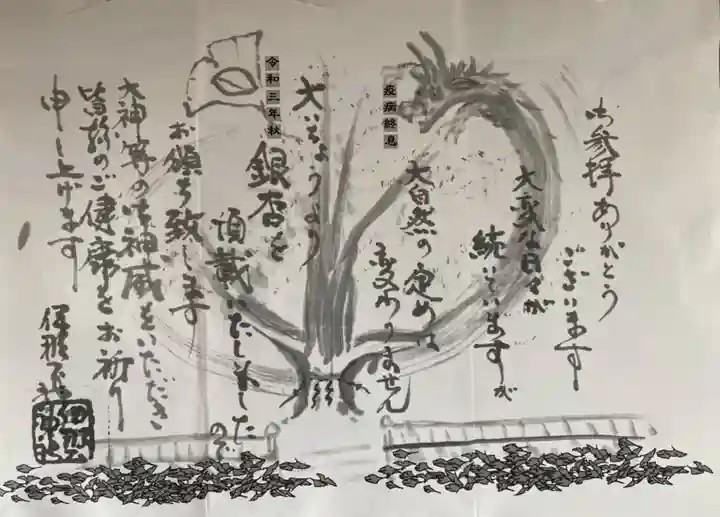 御参拝ありがとう
ございます
大変な日々が
続いていますが
大自然の定めは
変わりません
疫病終息
大いちょうより
銀杏を
頂戴いたしましたので
令和三年秋
お頒ち致します
大神等の御神威をいただき
皆様のご健康をお祈り
申し上げます
伊那下神社